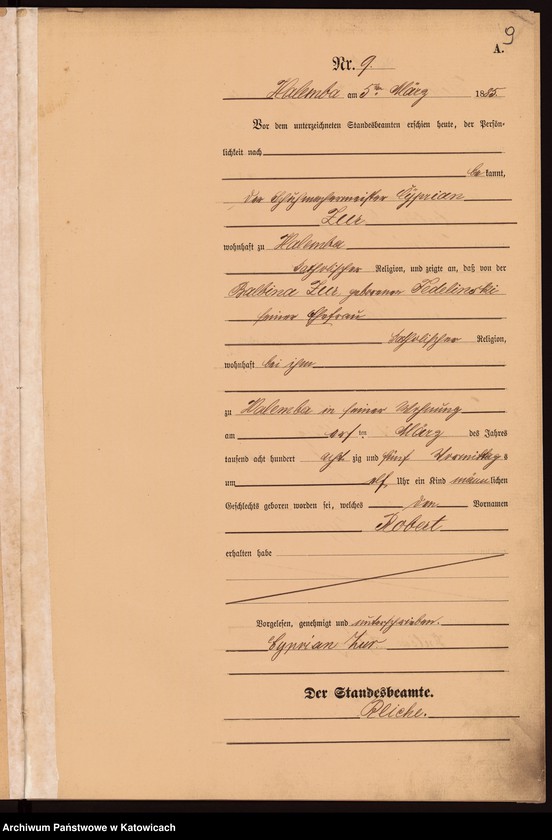 9
A.
Nr. 9.
Halemba am 5ten März 1885
Vor dem unterzeichneten Standesbeamten erschien heute, der Persön-
lichkeit nach
be kannt,
der Schuhmachermeister Cyprian
Zur
wohnhaft zu Halemba
katholischer Religion, und zeigte an, daß von der
Balbina Zur geborener Fedelinski
seiner Ehefrau
katholischer Religion,
wohnhaft bei ihm
zu Halemba in seiner Wohnung
am ten März des Jahres
tausend acht hundert acht zig und fünf Vormittags
um elf Uhr ein Kind männlichen
Geschlechts geboren worden sei, welches den Vornamen
Robert
erhalten habe
Vorgelesen, genehmigt und unterschrieben.
Cyprian Zur
Der Standesbeamte.
Reiche.
Archiwum Państwowe w Katowicach